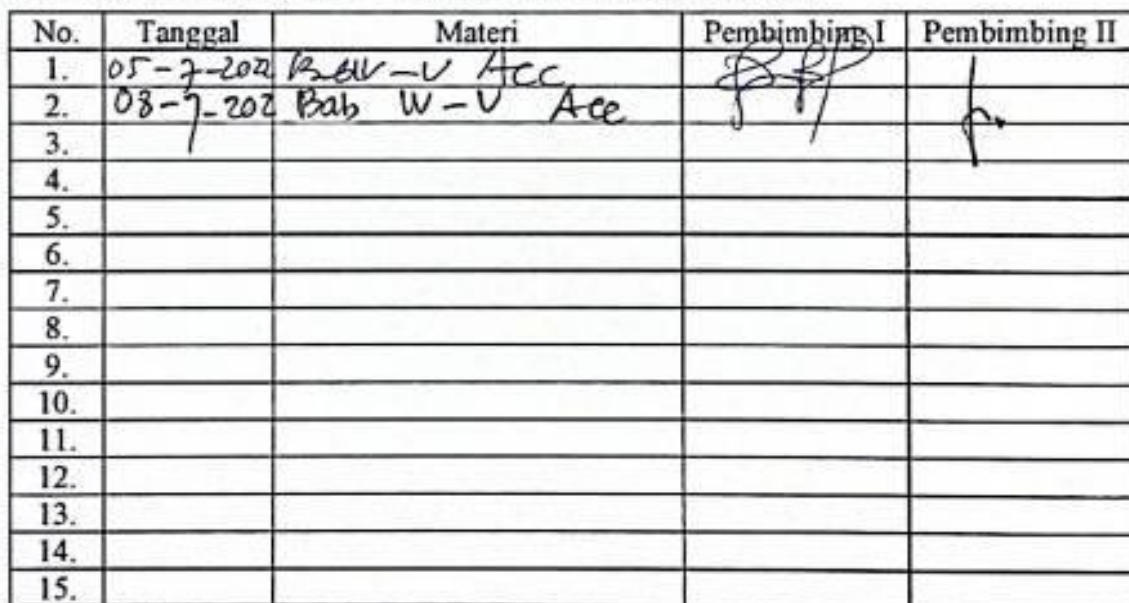 No. Tanggal Materi Pembimbing I Pembimbing II
1. 05-7-2022 Acc
2. 08-7-202 Bab IV-V Acc
3.
4.
5.
6.
7.
8.
9.
10.
11.
12.
13.
14.
15.